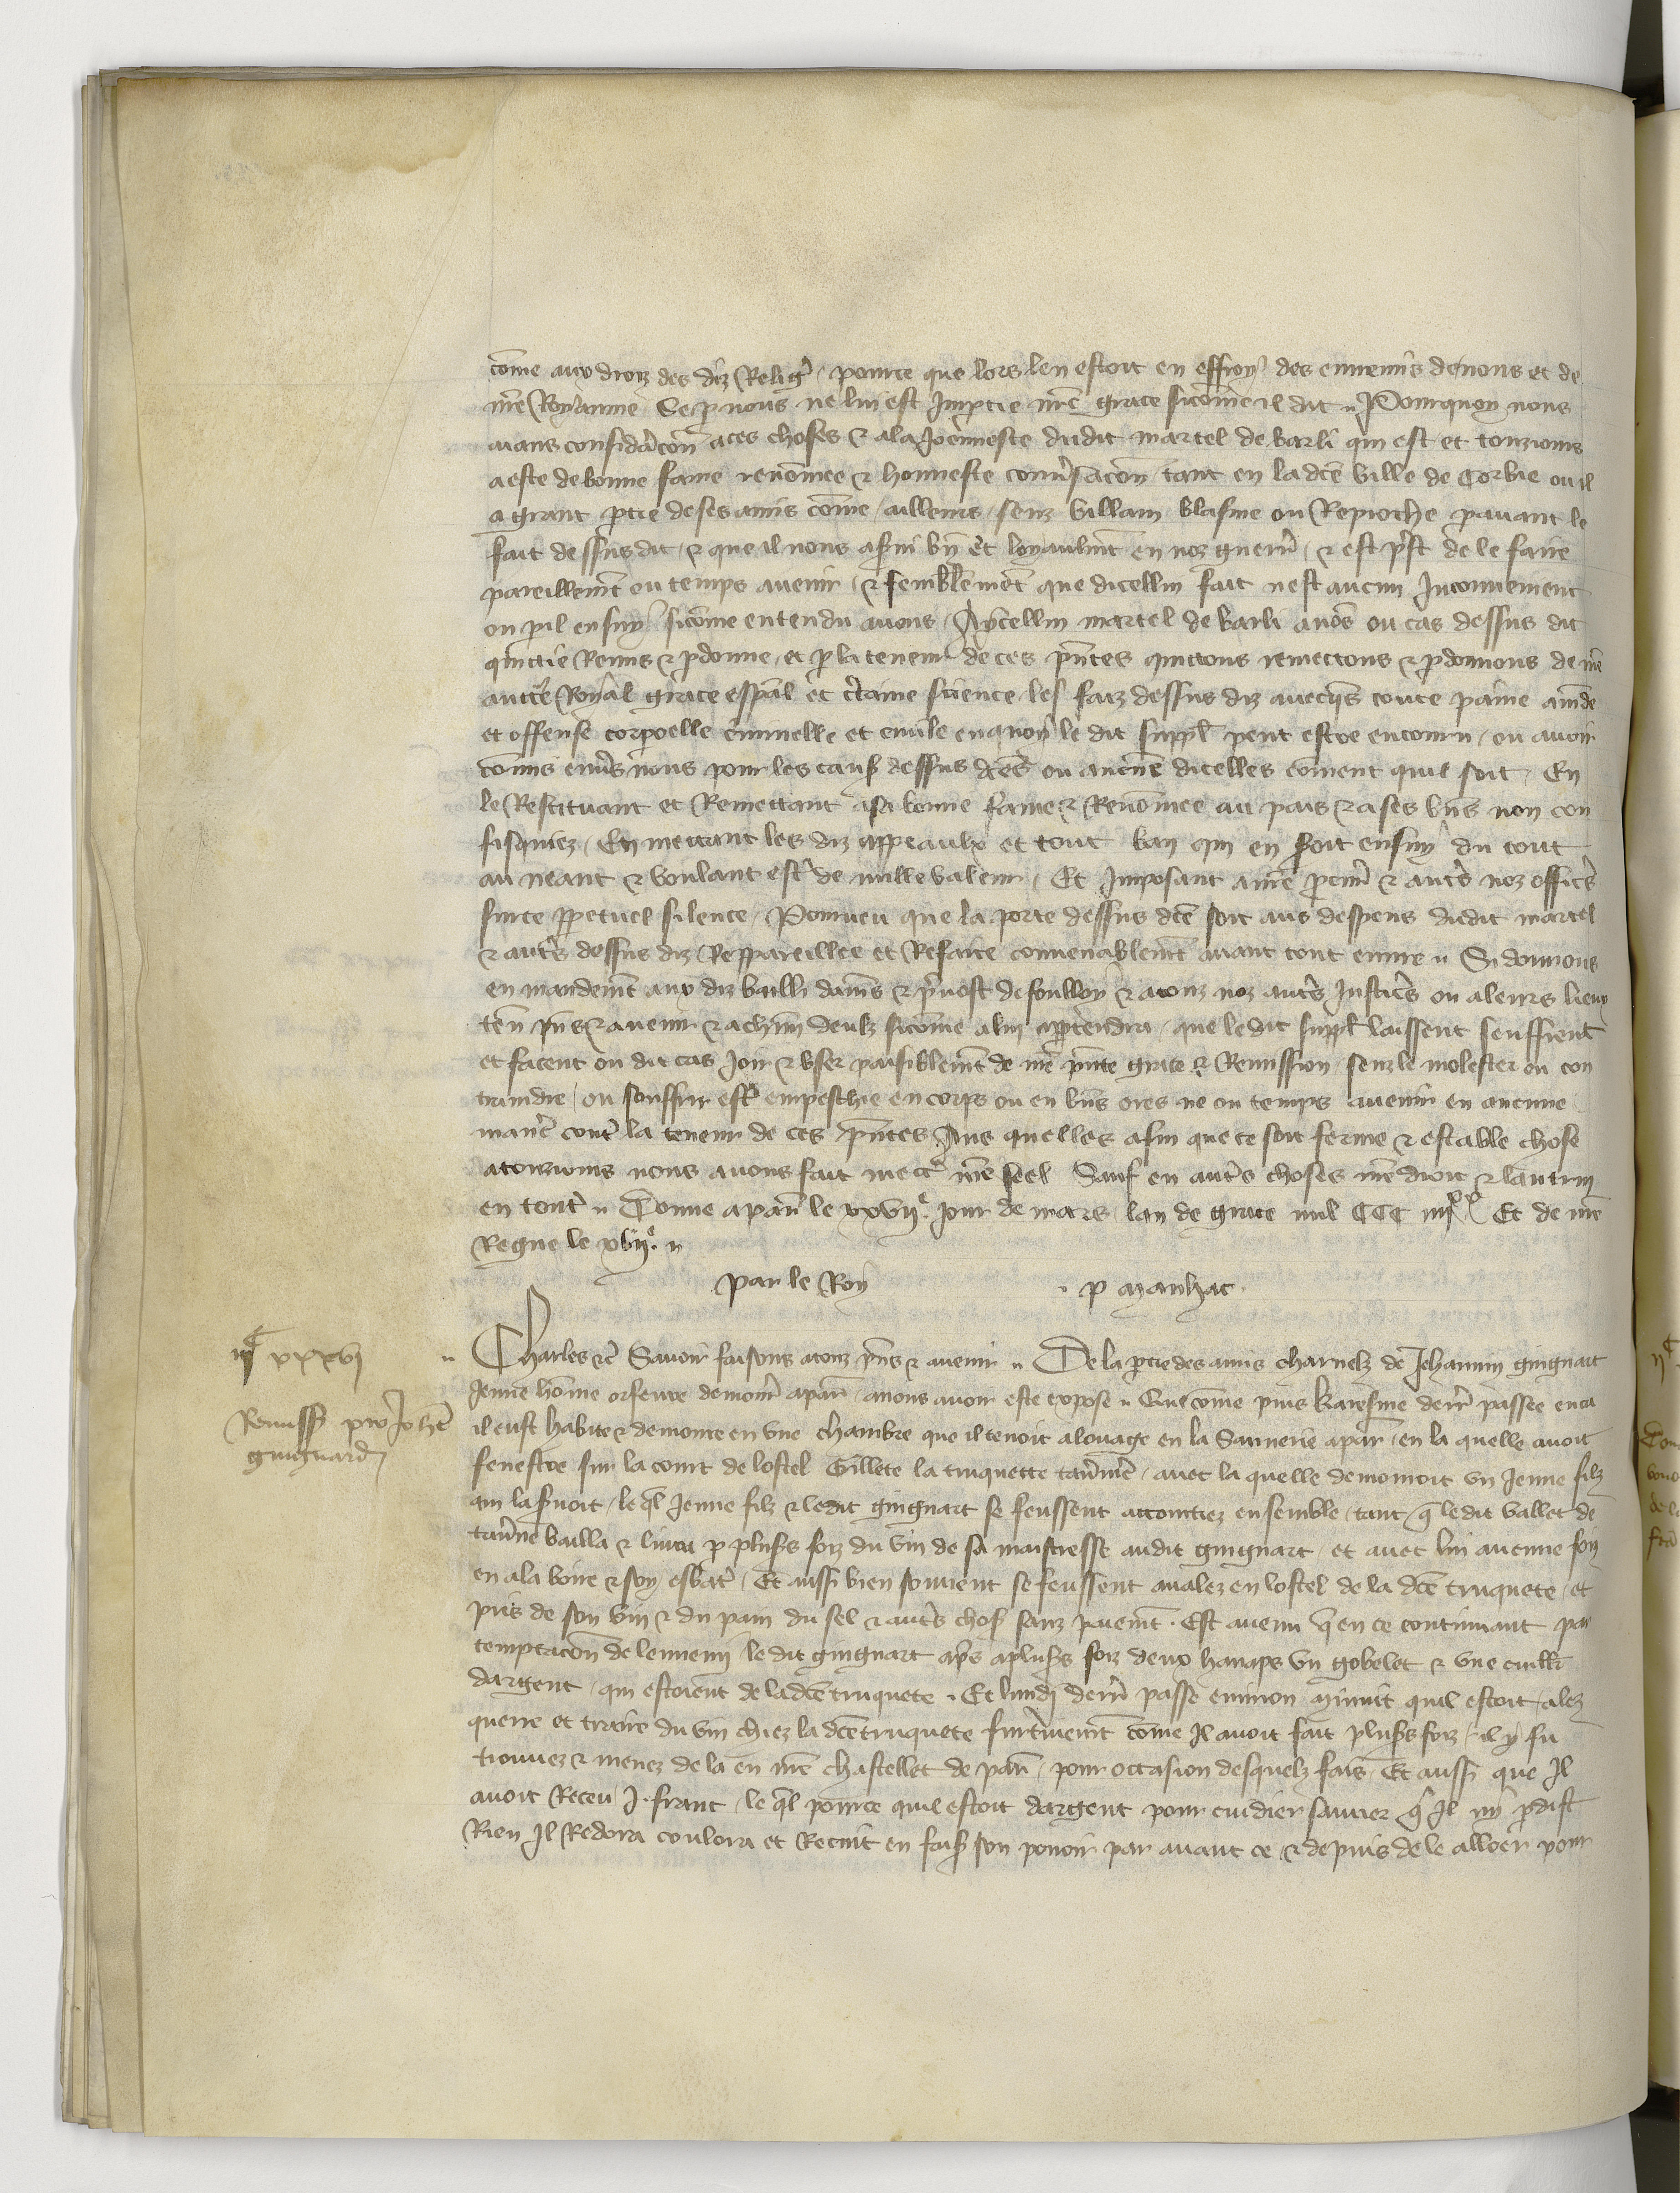 cõme aux droiz des diz Religͬ pource que lors len estoit en effroy des ennemis de nous et de
nr̃e Royaume Se p nous ne lui est Impartie nr̃e grace sicõme il dit Pourquoy nous
aians consideracõn a ces choses & a la Joennesse dudit martel de barli qui est et touzjours
a este de bonne fame renõmee & honneste conũsacõn tant en lad̃ce ville de Corbie ou il
a grant p̃tie de ses amis cõme ailleurs senz villain blasme ou Reproche pauant le
fait dessusdit & que il nous a serui bñ et loyaulmt̃ en noz guerrͬ & est p̃st de le faire
pareillemt̃ ou temps auenir & semblemẽt que dicellui fait nest aucun Inconuenient
ou pil ensuy sicõme entendu auons Aycellui martel de barli auõs ou cas dessus dit
quictie Remis & pdonne et p la teneur de ces pñtes quittons remettons & pdonnons de nr̃e
auctẽ Royal grace esp̃al et c̃taine science les faiz dessus diz auecqs̃ toute paine am̃de
et offense corporelle c̃iminelle et ciuile enquoy le dit suppl̃ peut estre encouru ou auoir
cõmis enũs nous pour les caus̃ dessus d̃ces ou aucũne dicelles cõment quil soit En
le Restituant et Remettant a sa bonne fame & Renõmee au pais & a ses bñs non con
fisquiez En mettant les diz appeaulx et tout ban qui en soit ensuy du tout
au neant & voulant estͬ de nulle valeur Et Imposant a nr̃e p̃curͬ & autͬs noz officͬs
surce ppetuel silence Pourueu que la porte dessus d̃ce soit aus despens dudit martel
& autͬs dessus diz Reppareillee et Refaite conuenablemt̃ auant tout euure Si donnons
en mandemt̃ aux diz bailli damiẽs & p̃uost de foulloy & a touz noz autͬs Justicͬs ou a leurs lieux
teñ pñs & auenir & a chũn deulx sicõme a lui apptendra que ledit suppl̃ laissent seuffrent
et facent ou dit cas Joir & vser paisiblemt̃ de nr̃e pñte grace & Remission senz le molester ou con
traindre ou souffrir estͬ empeschie en corps ou en bñs ores ne ou temps auenir en aucune
maner̃ contͬ la teneur de ces pñtes Aus quelles afin que ce soit ferme & estable chose
a touzjours nous auons fait mectͬ nr̃e seel Sauf en autͬs choses nr̃e droit & lautruy
en toutͬ Donne a parͥ le xxvijᵉ Jour de mars lan de grace mil CCC iiijˣˣ Et de nr̃e
Regne le xvijᵉ
Par le Roy p manhac
iijᶜ xxxvj
Charles &c̃ Sauoir faisons a touz pñs & auenir De la p̃tie des amis charnelz de Jehannin guignart
Jeune hõme orfeure demourͬ a parͥ a nous auoir este expose Que cõme puis karesme derrͬ passee enca
Remiss̃ pro Joh̃e
guignard
il eust habite & demoure en vne chambre que il tenoit a louage en la Saunerie a parͥ en la quelle auoit
fenestre sur la court de lostel Gillete la truquette tauͬniẽ auec la quelle demouroit vn Jeune filz
qui la s̃uoit le ql̃ Jeune filz & ledit guignart se feussent accointiez ensemble tant q̃ ledit vallet de
tauͬne bailla & liura p plus̃s foiz du vin de sa maistresse audit guignart et auec lui aucune foiz
en ala boire & soy esbatͬ Et aussi bien souuent se feussent aualez en lostel de la d̃ce truquete et
pris de son vin & du pain du sel & autͬs chos̃ sanz paiemt̃ Est auenu q̃ en ce continuant par
temptacõn de lennemi le dit guignart a p̃s a plus̃s foiz deux hanaps vn gobelet & vne cuillͬ
dargent qui estoient de lad̃ce truquete Et lundi derrͬ passe enuiron minuit quil estoit alez
querre et traire du vin chiez la d̃ce truquete furtiuemt̃ cõme Il auoit fait plus̃s foiz il y fu
trouuez & menez de la en nr̃e chastellet de parͥ pour occasion desquelz fais Et aussi que Il
auoit Receu j franc le ql̃ pource quil estoit dargent pour cuidier sauuer q̃ Il ny pdist
Rien Il Redora coulora et Recuit en fais̃ son pouoir par auant ce & depuis de le alloer pour